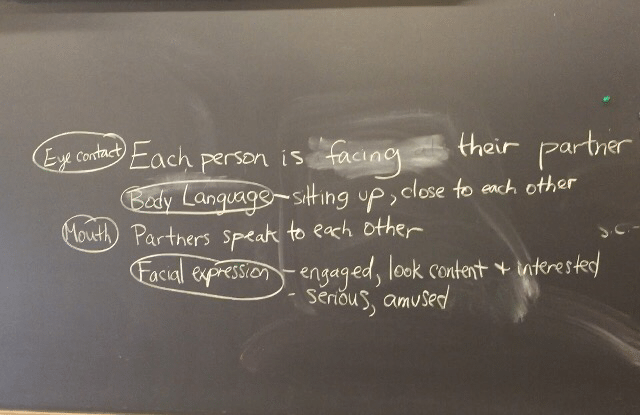 Eye contact Each person is facing their partner
Body Language - sitting up, close to each other
Mouth Partners speak to each other
Facial expression - engaged, look content + interested
- serious, amused